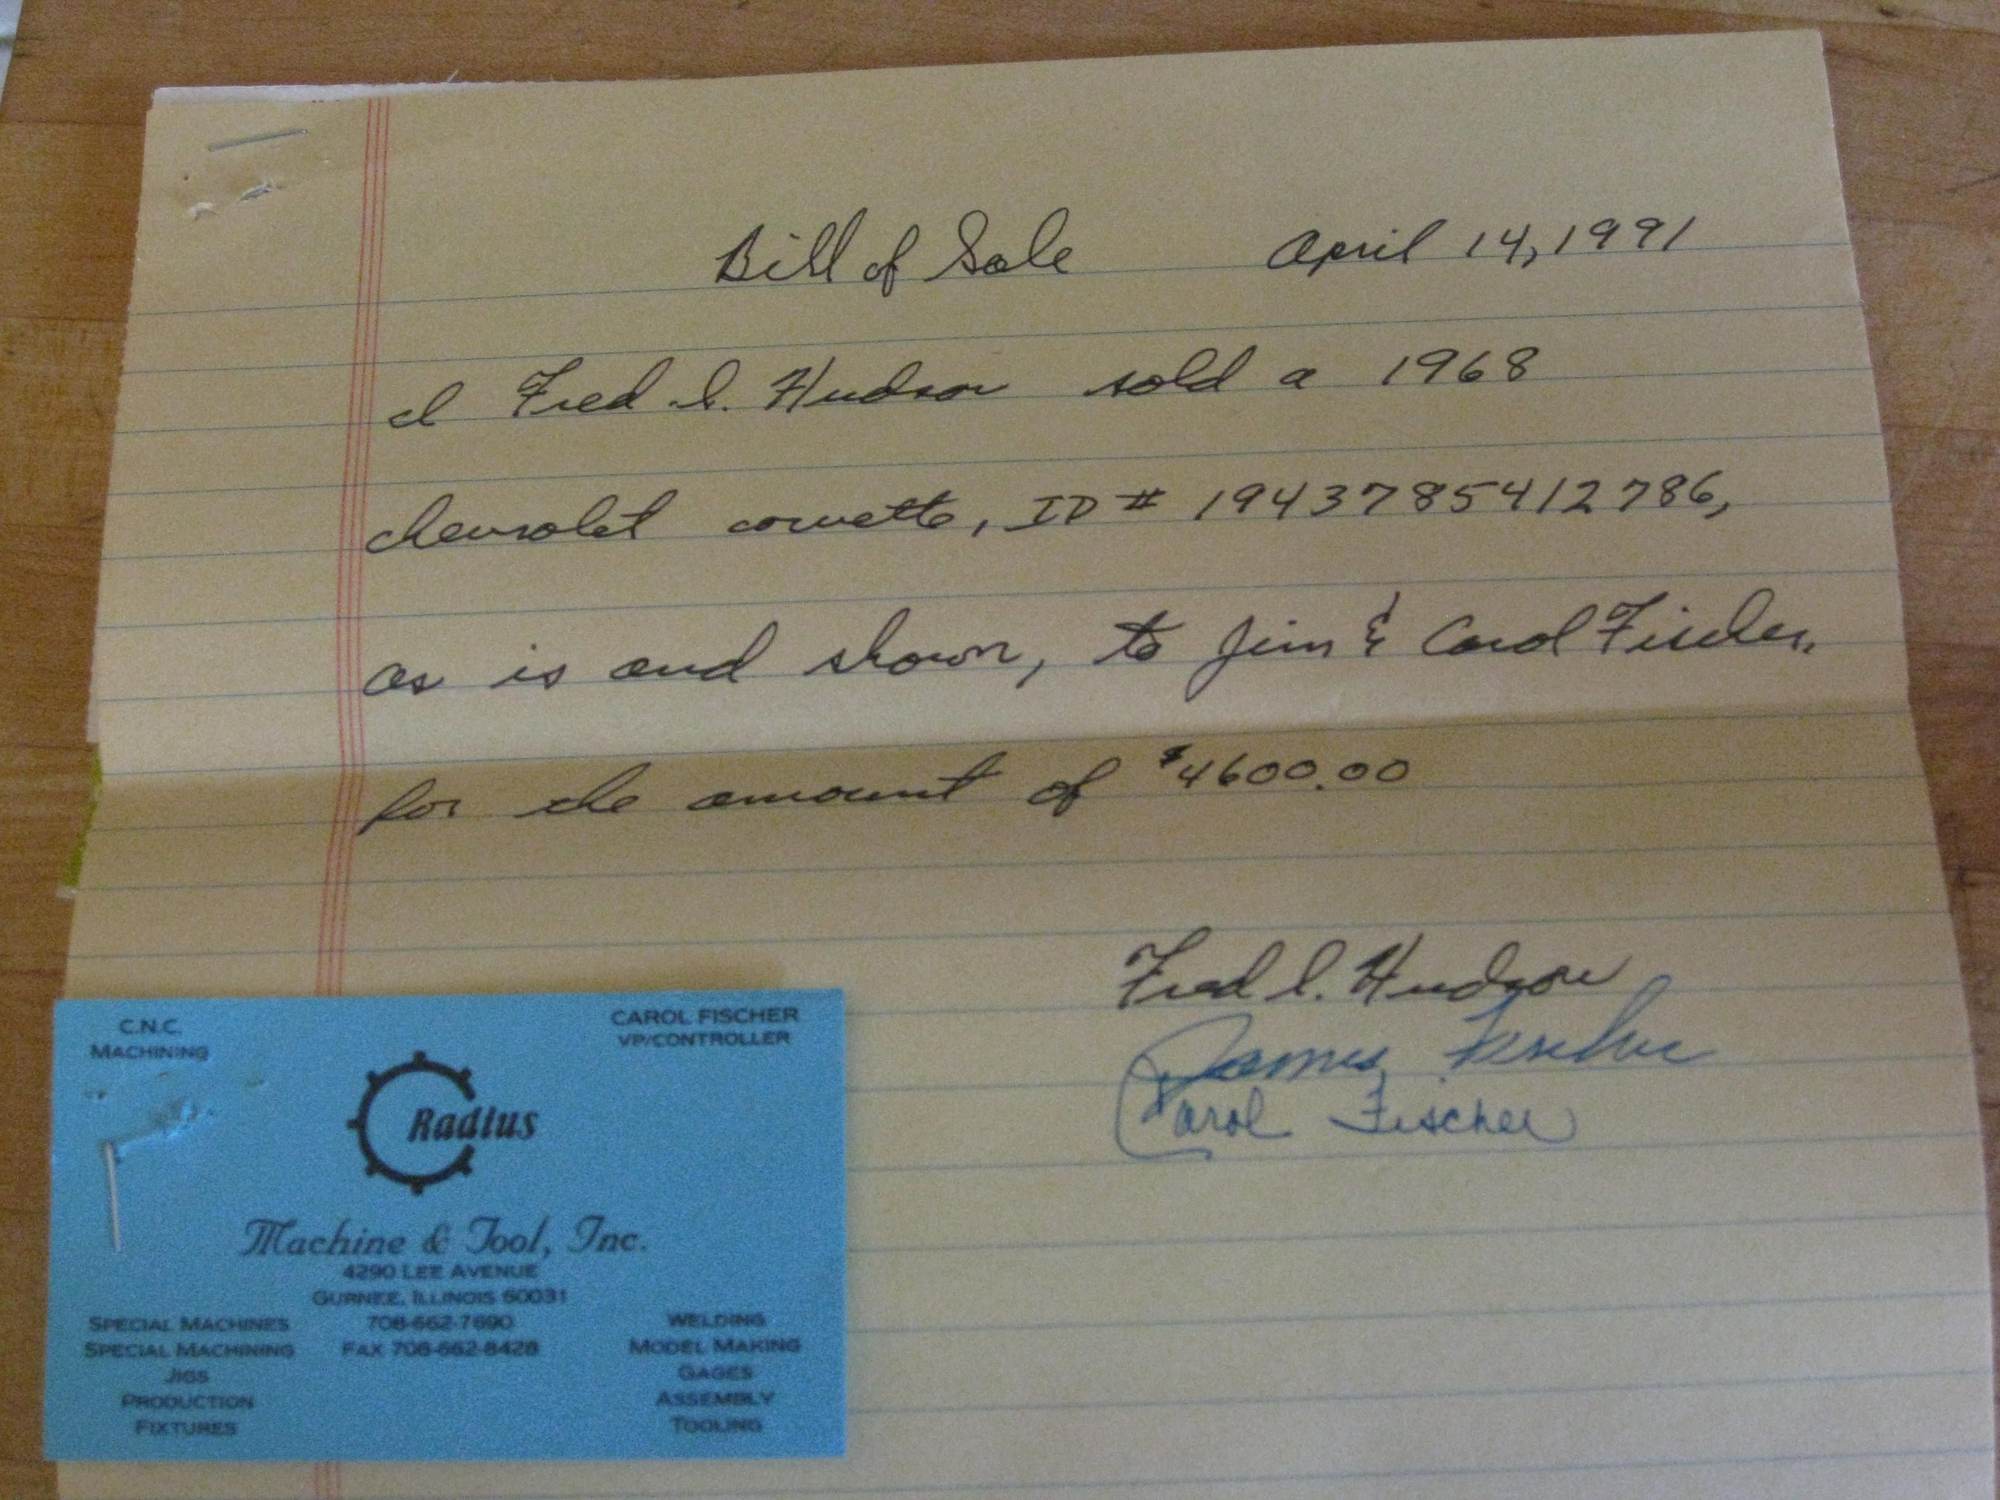 Bill of Sale April 14, 1991
I Fred I. Hudson sold a 1968
chevrolet corvette, ID # 1943785412786,
as is and shown, to Jim & Carol Fischer,
for the amount of $4600.00
Fred I. Hudson
James Fischer
Carol Fischer
C.N.C.
MACHINING
CAROL FISCHER
VP/CONTROLLER
Radius
Machine & Tool, Inc.
4290 LEE AVENUE
GURNEE, ILLINOIS 60031
708-662-7690
FAX 708-662-8428
SPECIAL MACHINES
SPECIAL MACHINING
JIGS
PRODUCTION
FIXTURES
WELDING
MODEL MAKING
GAGES
ASSEMBLY
TOOLING